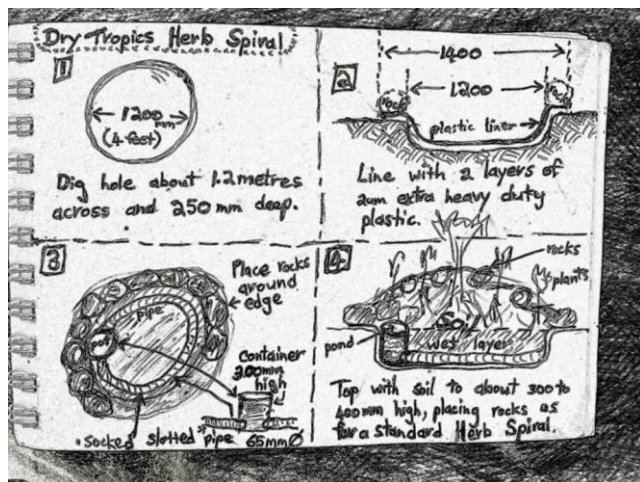 Dry Tropics Herb Spiral
1
1200 mm
(4 feet)
Dig hole about 1.2 metres
across and 250 mm deep.
2
1400
1200
rock
rock
plastic liner
Line with 2 layers of
2um extra heavy duty
plastic.
3
Place rocks
around
edge
pipe
pot
Container
200mm
high
socked slotted pipe 65mmØ
4
rocks
plants
Soil
pond
wet layer
Top with soil to about 300 to
400mm high, placing rocks as
for a standard Herb Spiral.